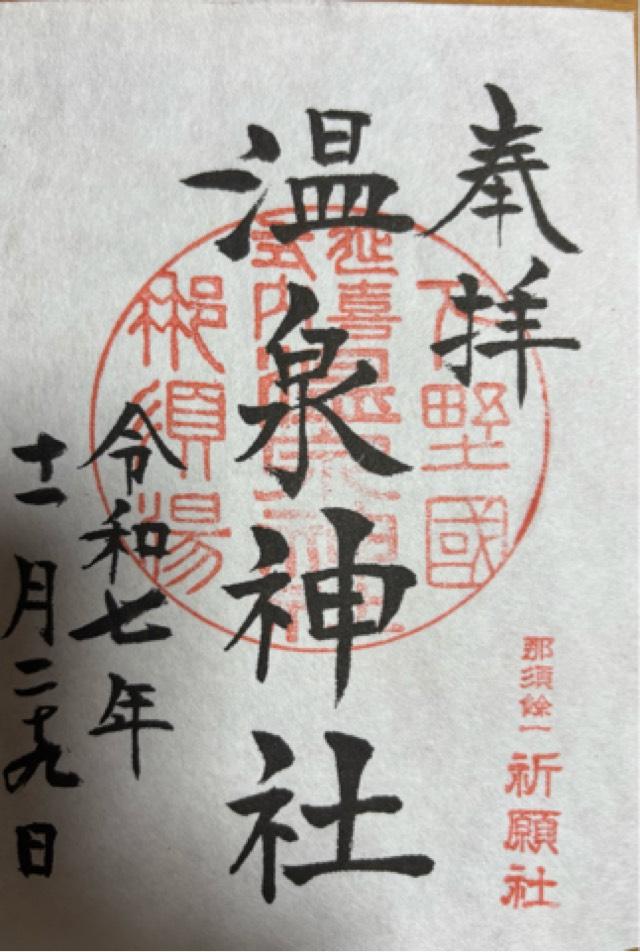 奉拝
下野國
延喜
式内
温泉神社
那須湯
那須餘一
祈願社
温泉神社
令和七年
十一月二十九日